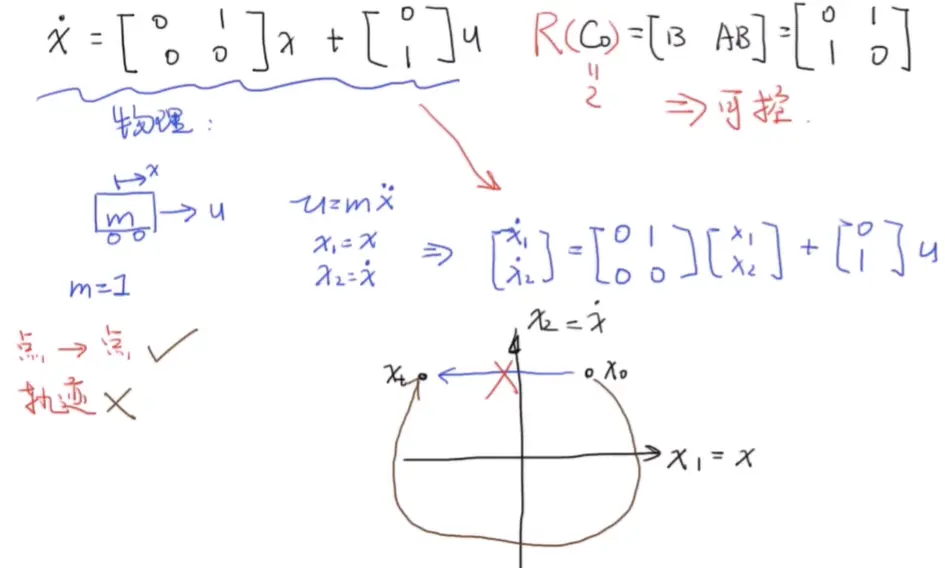 ẋ = [0 1; 0 0] x + [0; 1] u
R(C₀) = [B AB] = [0 1; 1 0]
"
2
⇒ 可控.
物理:
→ x
m → u
m=1
u=mẍ
x₁=x
x₂=ẋ
⇒ [ẋ₁; ẋ₂] = [0 1; 0 0] [x₁; x₂] + [0; 1] u
点 → 点, ✓
轨迹 ×
x₂ = ẋ
xₜ
x₀
x₁ = x